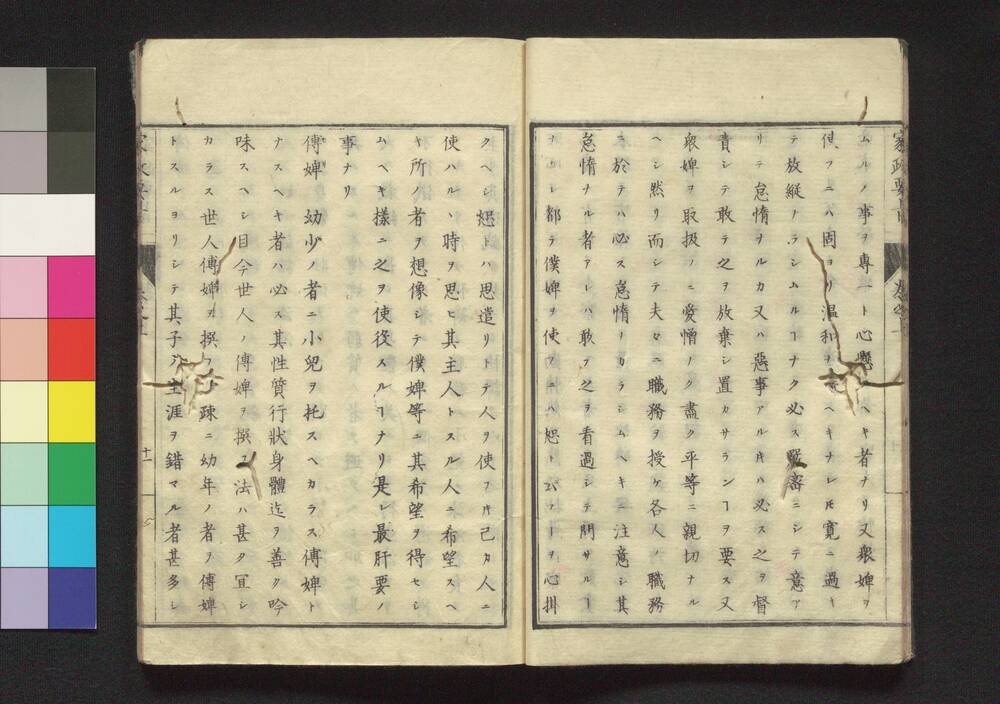 ムルノ事ヲ専一ト心懸ヘキ者ナリ又衆婢ヲ
使フニハ固ヨリ温和ヲ ヘキナレ𪜈寛ニ過キ
テ放縦ノラシムルヿナク必ス嚴密ニシテ意ア
リテ怠惰ヲルカ又ハ惡事アル𪜈ハ必ス之ヲ督
責シテ敢テ之ヲ放棄シ置カサランヿヲ要ス又
衆婢ヲ取扱フニ愛憎ノク盡ク平等ニ親切ナル
ヘシ然リ而シテ夫々ニ職務ヲ授ケ各人ノ職務
ニ於テハ必ス怠惰ノカラシムヘキニ注意シ其
怠惰ナル者アレハ敢テ之ヲ看過シテ問サルヿ
ナカレ都テ僕婢ヲ使フニハ恕ト云フヿヲ心掛
クヘシ恕トハ思遣リトテ人ヲ使フ𪜈己カ人ニ
使ハルヽ時ヲ思ヒ其主人トスル人ニ希望スヘ
キ所ノ者ヲ想像シテ僕婢等ニ其希望ヲ得セシ
ムヘキ様ニ之ヲ使役スルヿナリ是レ最肝要ノ
事ナリ
傅婢 幼少ノ者ニ小兒ヲ托スヘカラス傅婢ト
ナスヘキ者ハ必ス其性質行狀身體迄ヲ善ク吟
味スヘシ目今世人ノ傅婢ヲ撰フ法ハ甚タ冝シ
カラス世人傅婢ヲ撰フ 疎ニ幼年ノ者ヲ傅婢
トスルヨリシテ其子 生涯ヲ錯マル者甚多シ
十一